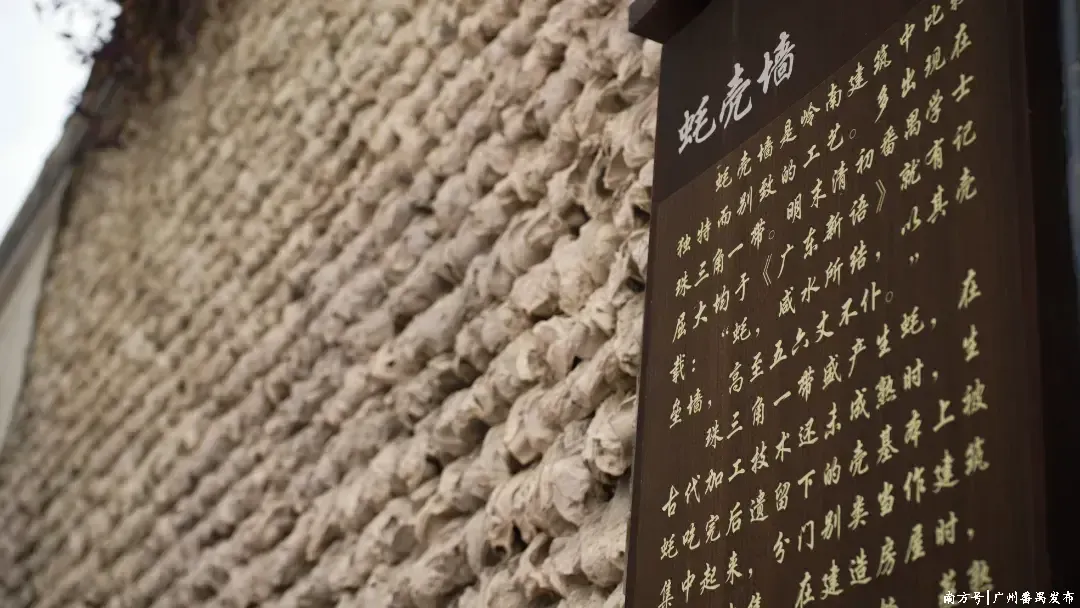 蚝壳墙
蚝壳墙是岭南建筑中比
独特而别致的工艺。多出现在
珠三角一带。明末清初番禺学士
屈大均于《广东新语》就有记
载：“蚝，咸水所结，以其壳
垒墙，高至五六丈不仆。”
珠三角一带盛产生蚝，在
古代加工技术还未成熟时，生
蚝吃完后遗留下的壳基本上被
集中起来，分门别类当作建筑
在建造房屋时，
南方号|广州番禺发布